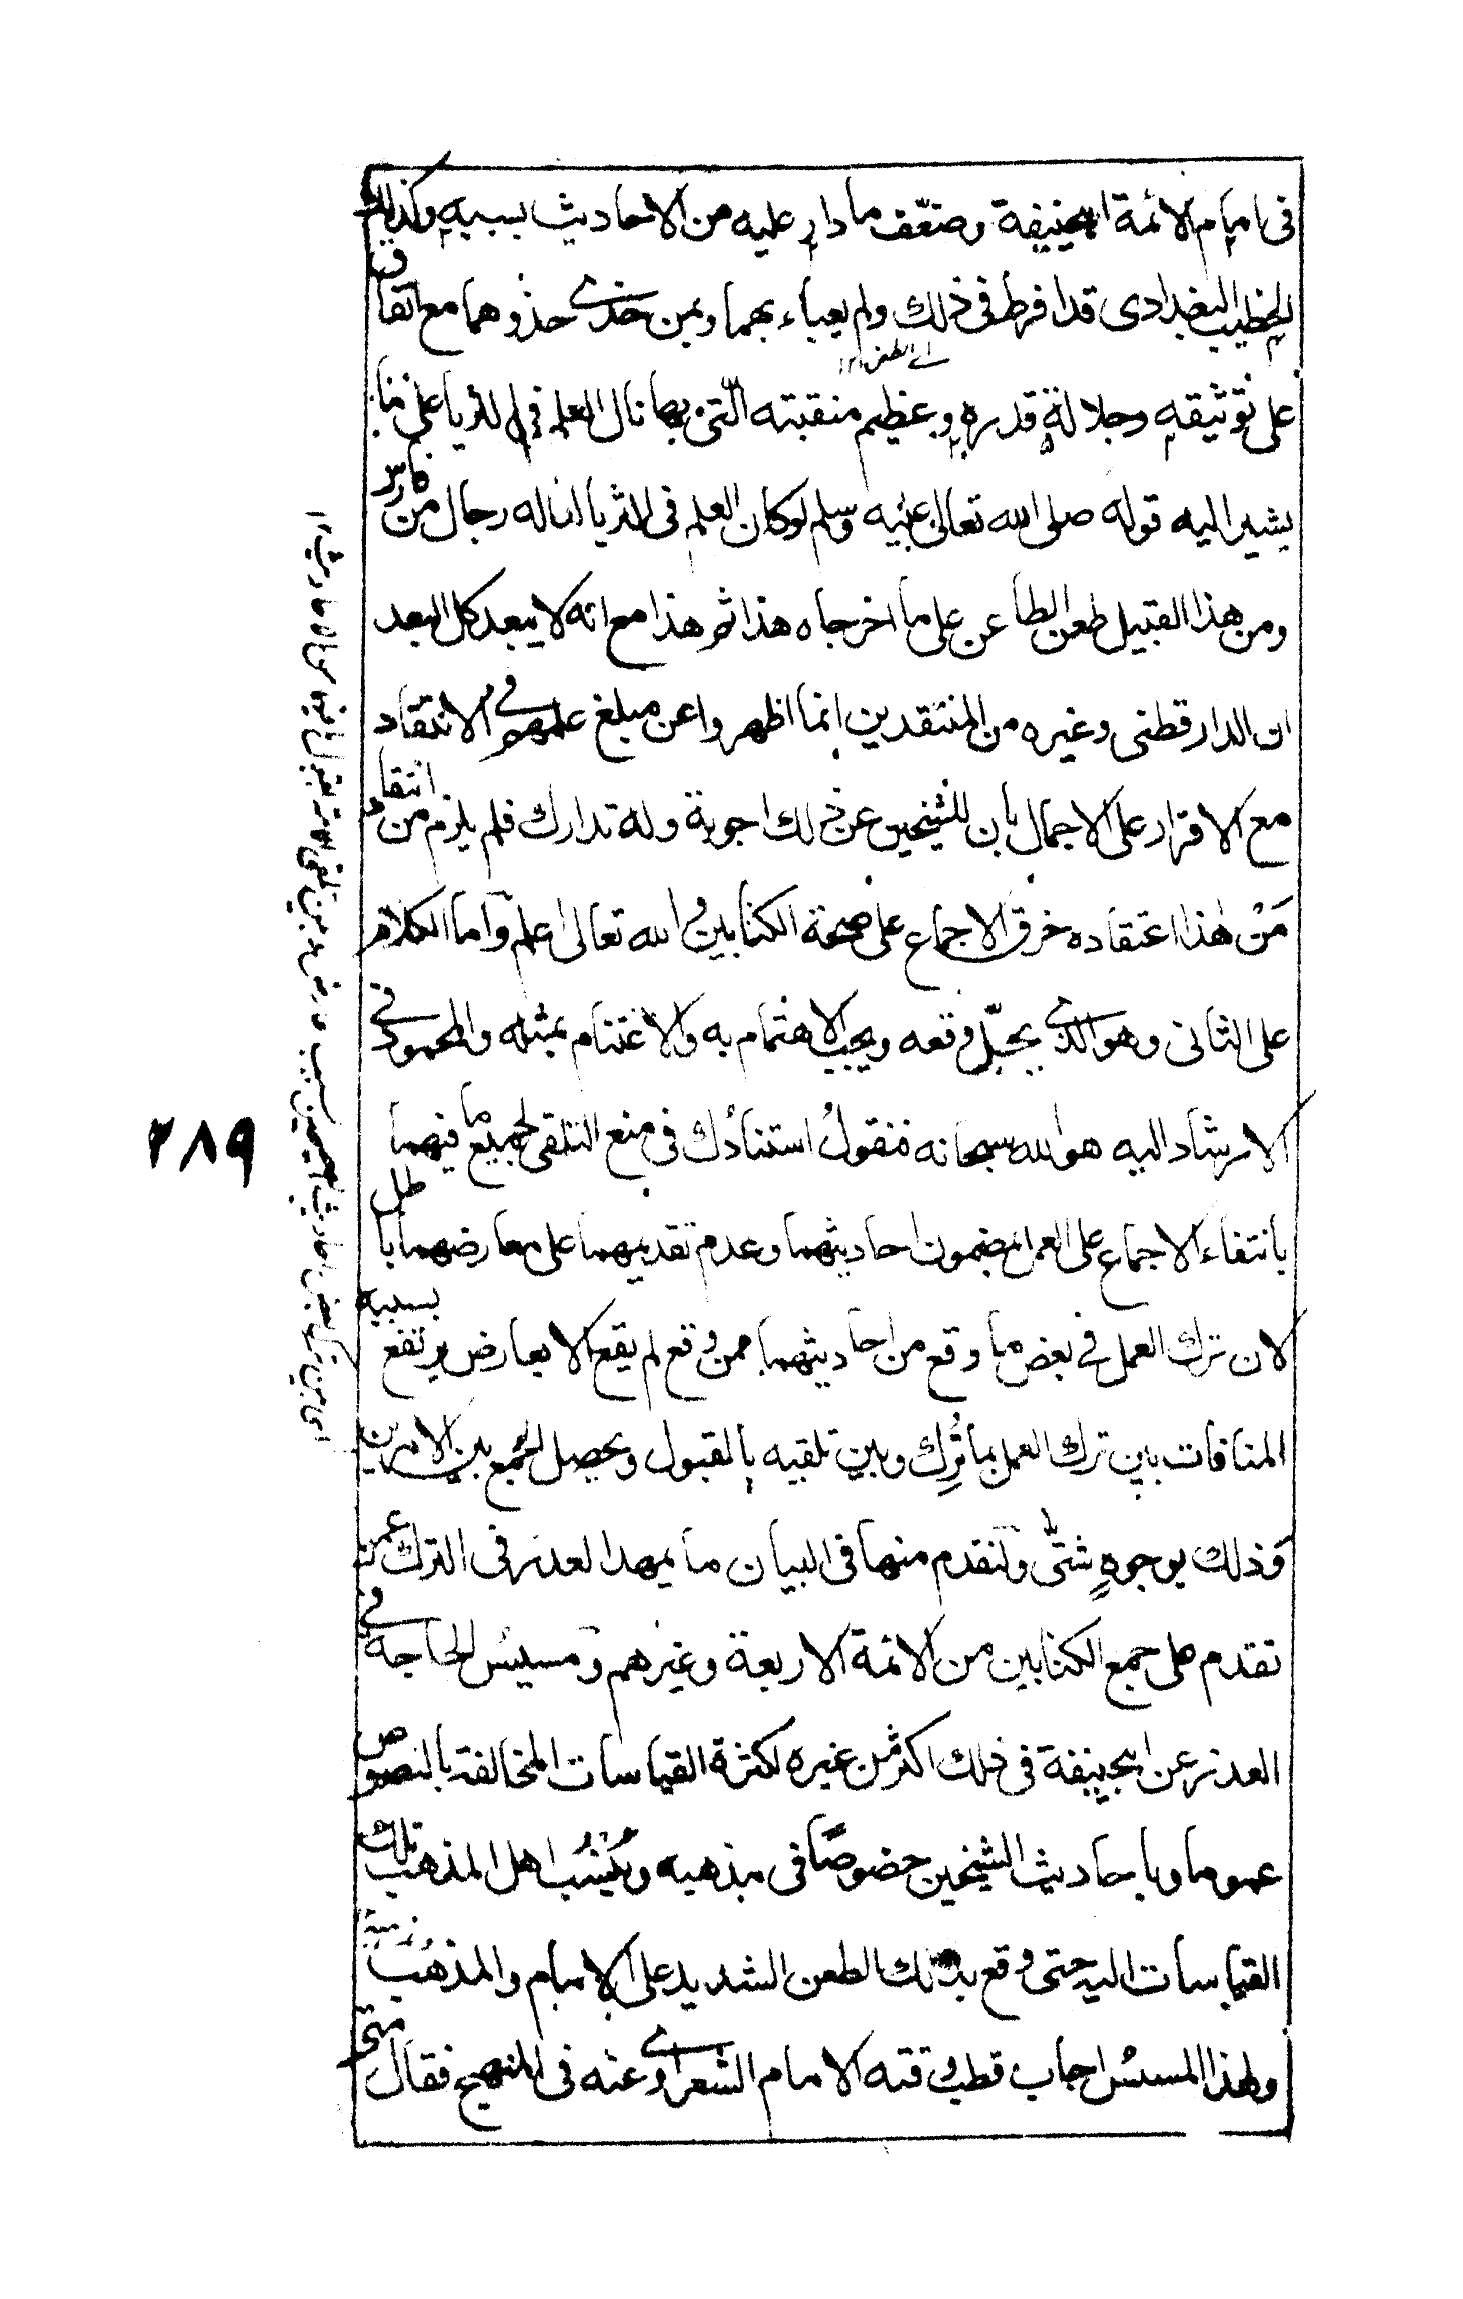 فى امام الائمة ابيحنيفة وضعّف ما دار عليه من الاحاديث بسببه وكذلك
الخطيب البغدادى قد افرط فى ذلك ولم يعباء بهما وبمن حذى حذوهما مع اتفاق
اى الطعن ١٢
على توثيقه وجلالة قدره وعظيم منقبته التى بها نال العلم فى الثريا على ما
يشير اليه قوله صلى الله تعالى عليه وسلم لو كان العلم فى الثريا لناله رجال من فارس
ومن هذا القبيل طعن الطاعن على ما اخرجاه هذا ثم هذا مع انه لا يبعد كل البعد
ان الدارقطنى وغيره من المنتقدين انما اظهروا عن مبلغ علمهم فى الانتقاد
مع الاقرار على الاجمال بان للشيخين عن ذلك اجوبة وله تدارك فلم يلزم من انتقاد
مَنْ هذا اعتقاده خرق الاجماع على صحة الكتابين والله تعالى اعلم واما الكلام
على الثانى وهو الذى يجلّ وقعه ويجب الاهتمام به والاغتنام بمثله والمحمود فى
الارشاد اليه هو الله سبحانه فنقولُ استنادُك فى منع التلقى لجميع ما فيهما
بانتفاء الاجماع على العمل بمضمون احاديثهما وعدم تقديمهما على معارضهما باطل
لان ترك العمل فى بعض ما وقع من احاديثهما ممن وقع لم يقع الا بعارض يرتفع بسببه
المنافات بين ترك العمل بما تُرِك وبين تلقيه بالقبول ويحصل الجمع بين الامرين
وذلك بوجوهٍ شتّى ولنقدم منها فى البيان ما يمهد العذر فى الترك عمن
تقدم على جمع الكتابين من الائمة الاربعة وغيرهم ومسيسُ الحاجة فى
العذر عن ابيحنيفة فى ذلك اكثر من غيره لكثرة القياسات المخالفة بالنصوص
عموما وباحاديث الشيخين خصوصًا فى مذهبه ويُنسُب اهل المذهب تلك
القياسات اليه حتى وقع بذلك الطعن الشديد على الامام والمذهب
ولهذا المسيس اجاب قطب وقته الامام الشعراوى عنه فى المنهج فقال متى
٢٨٩